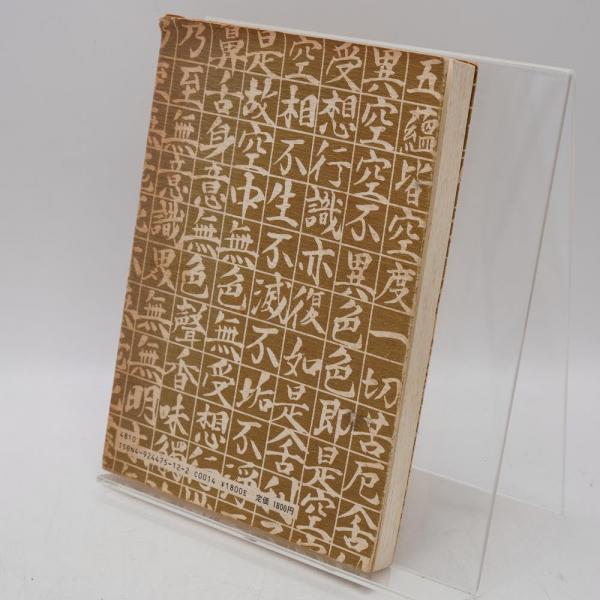 五蘊皆空度一切苦厄舍
異空空不異色色即是空
受想行識亦復如是舍
空相不生不滅不垢不淨
是故空中無色無受想行
鼻舌身意無色聲香味觸
乃至無意識界無無明亦
4810
ISBN4-924475-12-2 C0014 ¥1800E 定価 1800円